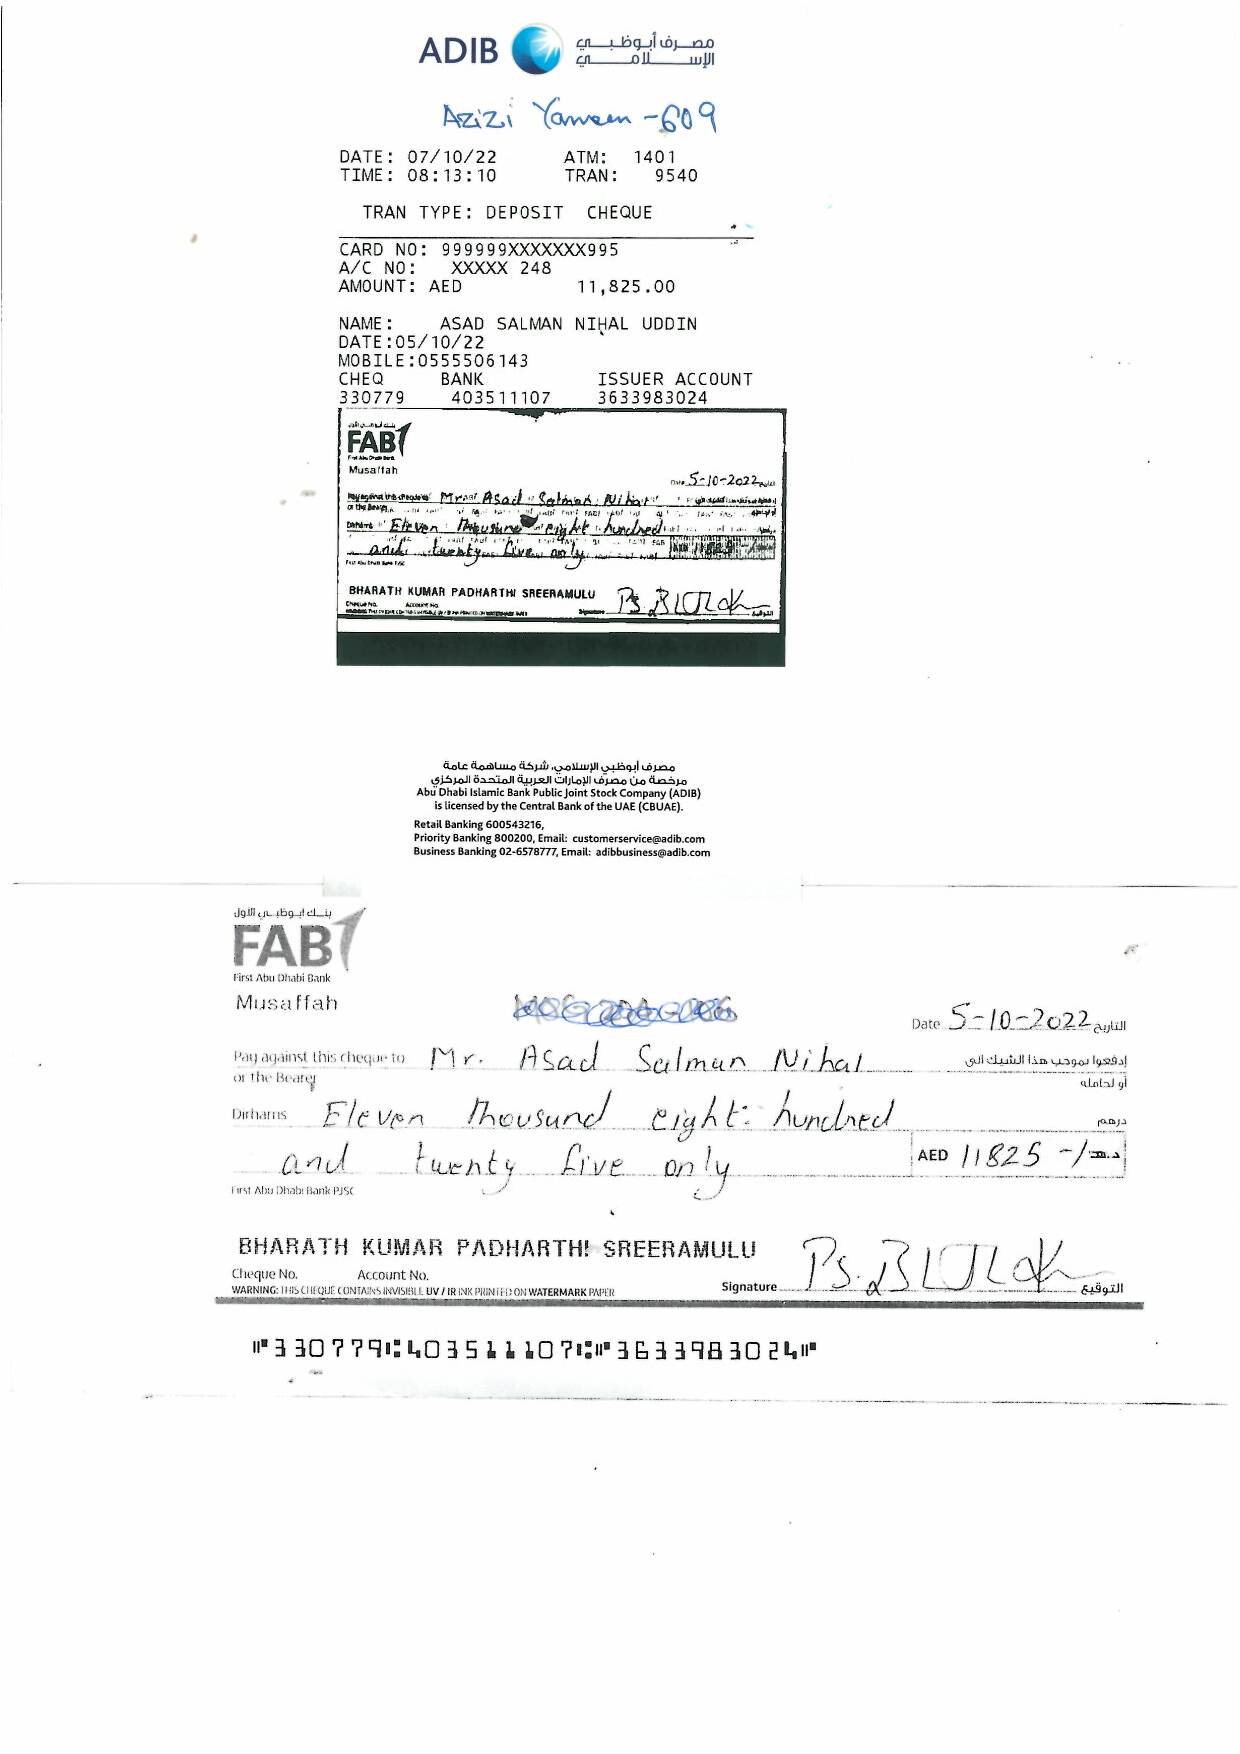 ADIB مصرف أبوظبي
الإسلامي
Azizi Yameen - 609
DATE: 07/10/22 ATM: 1401
TIME: 08:13:10 TRAN: 9540
TRAN TYPE: DEPOSIT CHEQUE
CARD NO: 999999XXXXXXX995
A/C NO: XXXXX 248
AMOUNT: AED 11,825.00
NAME: ASAD SALMAN NIHAL UDDIN
DATE:05/10/22
MOBILE:0555506143
CHEQ BANK ISSUER ACCOUNT
330779 403511107 3633983024
FAB
Musaffah
5-10-2022
Mr. Asad Salman Nihal
Eleven Thousund eight hundred
and twenty five only
BHARATH KUMAR PADHARTHI SREERAMULU
Cheque No. Account No.
Signature التوقيع
مصرف أبوظبي الإسلامي، شركة مساهمة عامة
مرخصة من مصرف الإمارات العربية المتحدة المركزي
Abu Dhabi Islamic Bank Public Joint Stock Company (ADIB)
is licensed by the Central Bank of the UAE (CBUAE).
Retail Banking 600543216,
Priority Banking 800200, Email: customerservice@adib.com
Business Banking 02-6578777, Email: adibbusiness@adib.com
بنك أبوظبي الأول
FAB
First Abu Dhabi Bank
Musaffah
Date 5-10-2022 التاريخ
Pay against this cheque to Mr. Asad Salman Nihal إدفعوا بموجب هذا الشيك إلى
or the Bearer أو لحامله
Dirhams Eleven Thousund eight hundred درهم
and twenty five only AED 11825 -/ د.هـ
First Abu Dhabi Bank PJSC
BHARATH KUMAR PADHARTHI SREERAMULU
Cheque No. Account No.
WARNING: THIS CHEQUE CONTAINS INVISIBLE UV / IR INK PRINTED ON WATERMARK PAPER Signature التوقيع
330779 403511107 3633983024